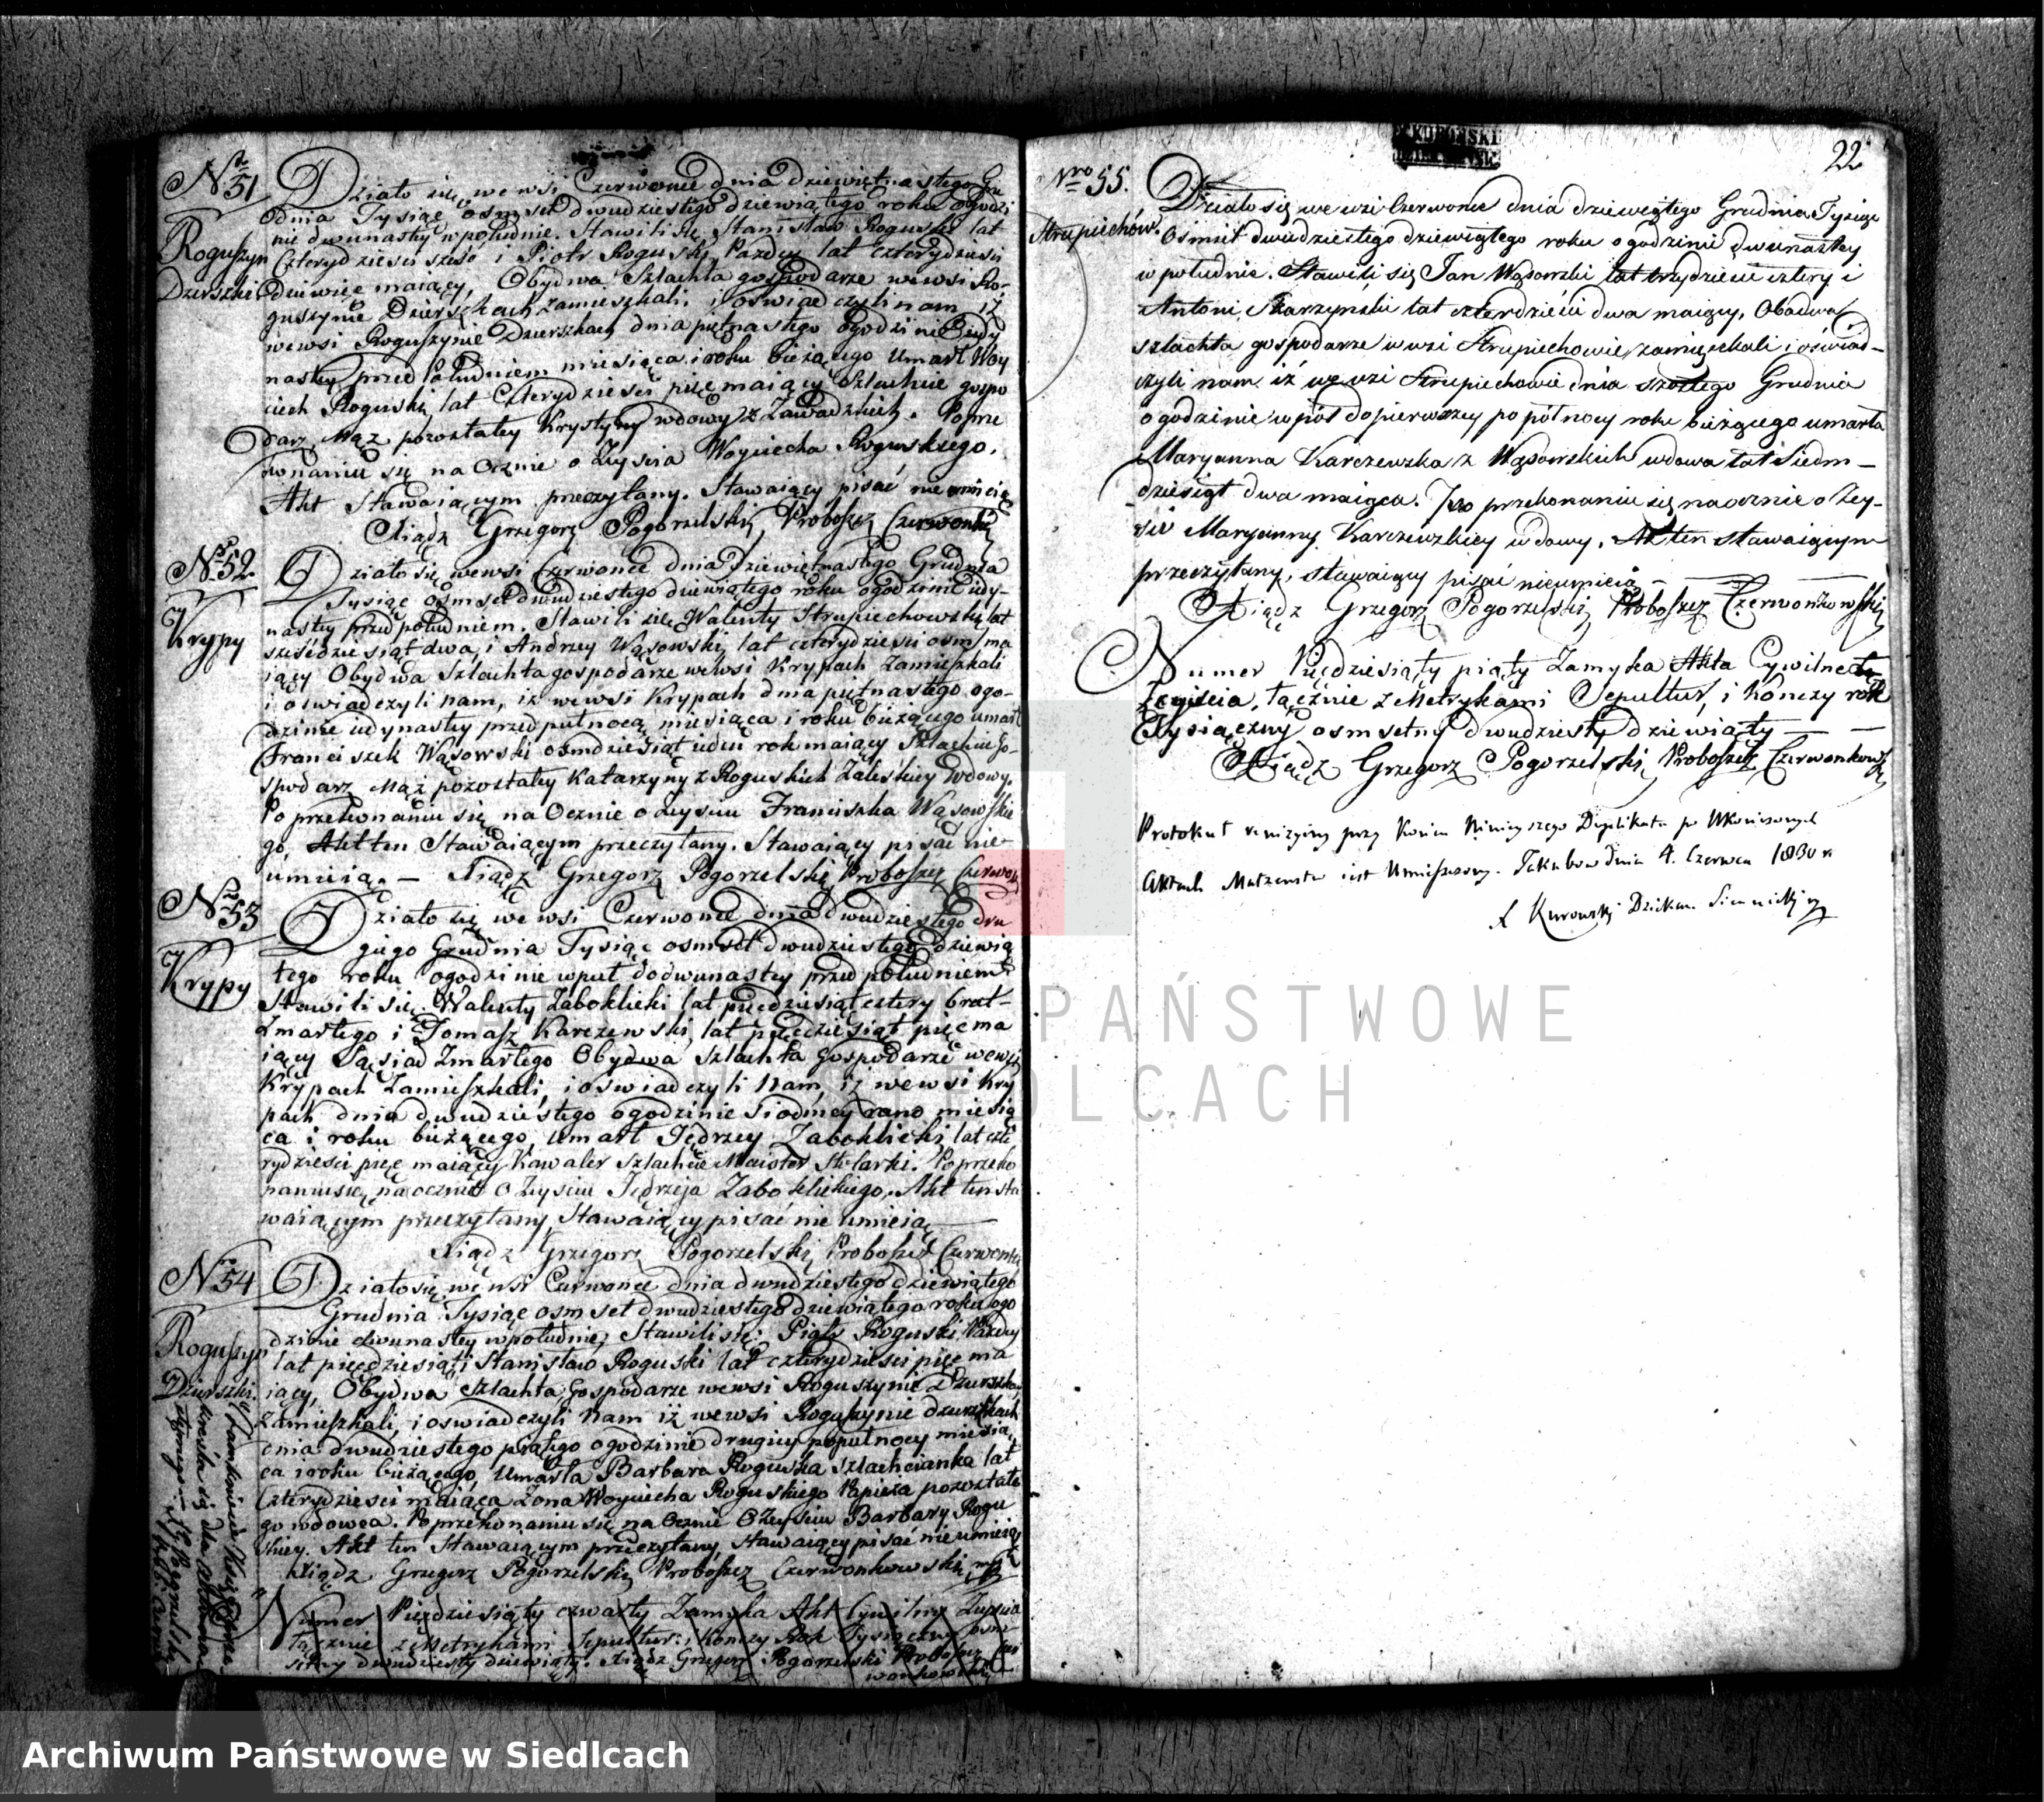 Nro 51
Roguszyn
Dzierszki
Działo się we wsi Czerwonce dnia dziewiętnastego Gru
dnia Tysiąc osmset dwudziestego dziewiątego roku ogodzi
nie dwunastey wpołudnie. Stawili się Stanisław Roguski lat
czterydzieści sześć i Piotr Roguski Pazdey lat czterydzieści
dziewięć maiący, Obydwa Szlachta gospodarze wewsi Ro-
guszynie Dzierszkach zamieszkali, i oświadczyli nam iż
wewsi Roguszynie Dzierszkach dnia piętnastego ogodzinie Iedy
nastey przed Południem miesiąca i roku bieżącego Umarł Woy
ciech Roguski, lat Czterydzieści pięć maiący Szlachcic gospo
darz, Mąż pozostałey Krystyny wdowy z Zawadzkich. Po prze
konaniu się na Ocznie o Zeyściu Woyciecha Roguskiego,
Akt Stawaiącym przeczytany. Stawaiący pisać nieumieią
Xiądz Grzegorz Pogorzelski Proboszcz Czerwonki
Nro 52.
Krypy
Działo się wewsi Czerwonce dnia Dziewiętnastego Grudnia
Tysiąc osmset dwudziestego dziewiątego roku ogodzinie iedy-
nastey przed południem. Stawili się Walenty Strupiechowski lat
sześćdziesiąt dwa, i Andrzey Wąsowski, lat czterydzieści osm ma
iący Obydwa Szlachta gospodarze wewsi Krypach Zamieszkali
i oświadczyli nam, iż wewsi Krypach dnia piętnastego ogo-
dzinie iedynastey przed pułnocą miesiąca i roku bieżącego umarł
Franciszek Wąsowski osmdziesiąt ieden rok maiący Szlachcic Go-
spodarz Mąż pozostałey Katarzyny z Roguskich Zaleskiey Wdowy.
Po przekonaniu się na Ocznie o Zeyściu Franciszka Wąsowskie
go, Akt ten Stawaiącym przeczytany. Stawaiący pisać nie
umieią. — Xiądz Grzegorz Pogorzelski Proboszcz Czerwon
Nro 53
Krypy
Działo się we wsi Czerwonce dnia dwudziestego dru
giego Grudnia Tysiąc osmset dwudziestego dziewią
tego roku ogodzinie wpuł dodwunastey przed południem
Stawili się Walenty Zaboklicki lat pięćdziesiąt cztery brat
Zmarłego i Tomasz Karczewski, lat pięćdziesiąt pięć ma
iący Sąsiad Zmarłego Obydwa Szlachta Gospodarze wewsi
Krypach Zamieszkali, i oświadczyli Nam, iż wewsi Kry
pach dnia dwudziestego ogodzinie Siodmey rano miesią
ca i roku bieżącego, umarł Jędrzey Zaboklicki, lat czte
rydzieści pięć maiący Kawaler Szlachcic Maister Stolarki. Po przeko
naniu się naocznie o Zeyściu Jędrzeja Zaboklickiego, Akt ten sta
waiącym przeczytany, Stawaiący pisać nie umieią
Xiądz Grzegorz Pogorzelski Proboszcz Czerwonki
Nro 54
Roguszyn
Dzierszki.
Działo się wewsi Czerwonce dnia dwudziestego dziewiątego
Grudnia Tysiąc osmset dwudziestego dziewiątego roku ogo
dzinie dwunastey wpołudnie, Stawili się: Piotr Roguski Pazdey
lat pięćdziesiąt i Stanisław Roguski lat czterydzieści pięć ma
iący, Obydwa Szlachta, Gospodarze wewsi Roguszynie Dzierszkach
Zamieszkali, i oświadczyli nam iż wewsi Roguszynie dzierszkach
dnia dwudziestego piątego ogodzinie drugiey popułnocy miesią
ca i roku bieżącego, Umarła Barbara Roguska szlachcianka lat
Czterydzieści maiąca Żona Woyciecha Roguskiego Papieża pozostałe
go wdowca. Po przekonaniu się na Ocznie o Zeyściu Barbary Rogu
skiey. Akt ten Stawaiącym przeczytany, Stawaiący pisać nie umieią
Xiądz Grzegorz Pogorzelski Proboszcz Czerwonkowski
Numer Pięćdziesiąty czwarty Zamyka Akt Cywilny Zeyścia
łącznie z Metrykami Sepultur, i Kończy Rok Tysiączny osm
setny dwudziesty dziewiąty. Xiądz Grzegorz Pogorzelski Proboszcz Czer
wonkowski
22
Nro 55.
Strupiechów.
Działo się we wsi Czerwonce dnia dziewiątego Grudnia Tysiąc
Osmset dwudziestego dziewiątego roku o godzinie dwunastey
w południe. Stawili się Jan Wąsowski lat trzydzieści cztery i
Antoni Skarzynski lat czterdzieści dwa maiący, Obadwa
szlachta gospodarze w wsi Strupiechowie zamięszkali i oświad-
czyli nam iż we wsi Strupiechowie dnia szóstego Grudnia
o godzinie wpół do pierwszey po północy roku bieżącego umarła
Maryanna Karczewska z Wąsowskich wdowa lat Siedm-
dziesiąt dwa maiąca. Po przekonaniu się naocznie o Zey-
ściu Maryanny Karczewskiey wdowy, Akt ten stawaiącym
przeczytany, stawaiący pisać nieumieią —
Xiądz Grzegorz Pogorzelski Proboszcz Czerwonkowski
Numer Pięćdziesiąty piąty Zamyka Akta Cywilne
Zeyścia, łącznie z Metrykami Sepultur, i Kończy rok
Tysiączny osmsetny dwudziesty dziewiąty — —
Xiądz Grzegorz Pogorzelski Proboszcz Czerwonkow
Protokuł rewizyiny przy Końcu Ninieyszego Duplikatu po Ukończonych
Aktach Małżeństw iest Umieszczony. Jakubow dnia 4. Czerwca 1830 r
X Kurowski Dziekan Siennicki
PAŃSTWOWE
LCACH
Archiwum Państwowe w Siedlcach